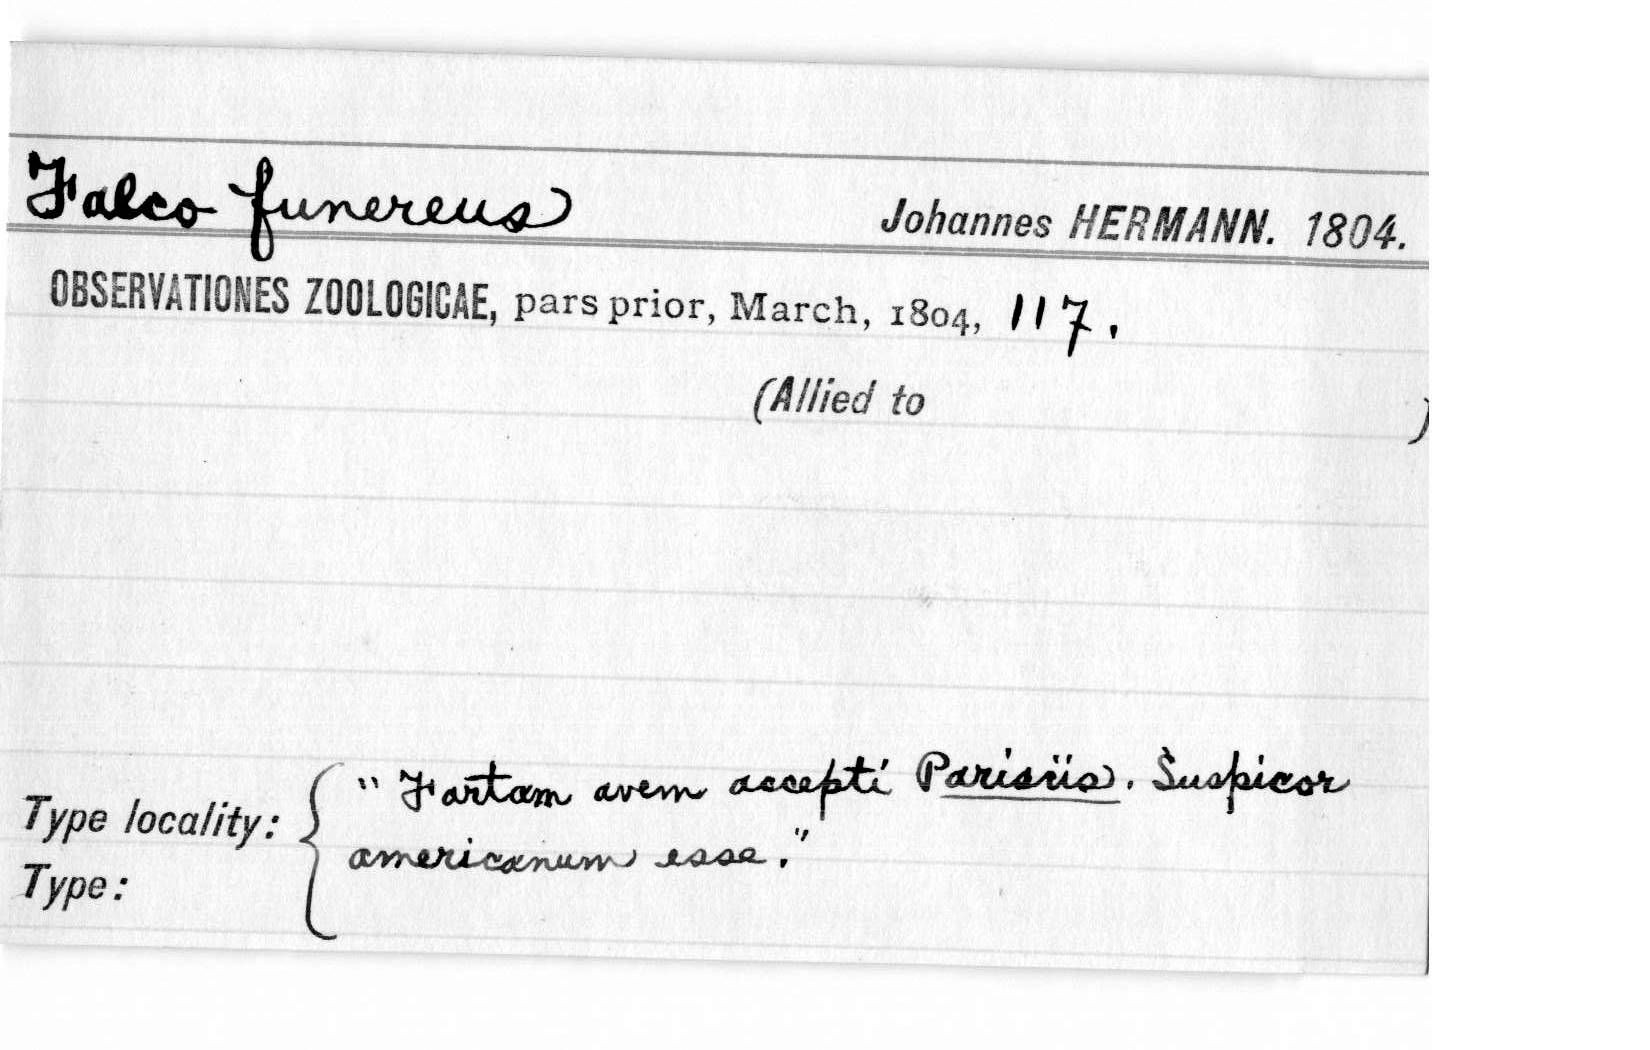 Falco funereus Johannes HERMANN. 1804.
OBSERVATIONES ZOOLOGICAE, pars prior, March, 1804, 117.
(Allied to )
Type locality: { "Fartam avem accepti Parisiis. Suspicor
americanum esse."
Type: